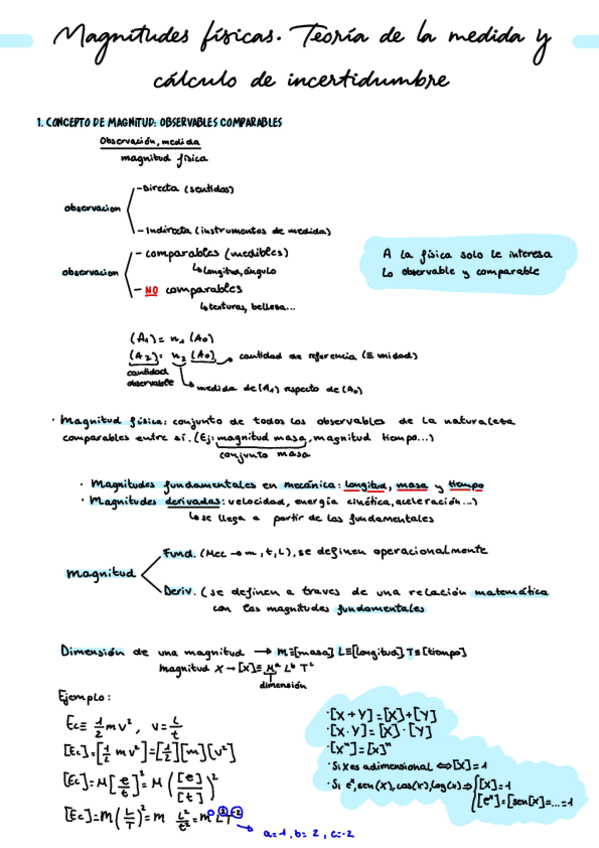 Magnitudes físicas. Teoría de la medida y
cálculo de incertidumbre
1. CONCEPTO DE MAGNITUD: OBSERVABLES COMPARABLES
Observación, medida
magnitud física
observacion
- Directa (sentidos)
- Indirecta (instrumentos de medida)
observacion
- comparables (medibles)
↳ longitud, ángulo
- NO comparables
↳ texturas, belleza...
A la física solo le interesa
lo observable y comparable
(A₁) = n₁ (A₀)
(A₂) = n₂ (A₀) → cantidad de referencia (≡ unidad)
cantidad
observable
medida de (A₁) respecto de (A₀)
· Magnitud física: conjunto de todos los observables de la naturaleza
comparables entre sí. (Ej: magnitud masa, magnitud tiempo...)
conjunto masa
· Magnitudes fundamentales en mecánica: longitud, masa y tiempo
· Magnitudes derivadas: velocidad, energía cinética, aceleración...)
↳ se llega a partir de las fundamentales
Magnitud
Fund. (Mec → m, t, L), se definen operacionalmente
Deriv. (se definen a traves de una relación matemática
con las magnitudes fundamentales
Dimensión de una magnitud → M≡[masa], L≡[longitud], T≡[tiempo]
magnitud X → [X]≡ Mᵃ Lᵇ Tᶜ
dimensión
Ejemplo:
Ec ≡ 1/2 mv², v = L/t
[Ec] = [1/2 mv²] = [1/2][m][v²]
[Ec] = M [e/t]² = M ([e]/[t])²
[Ec] = M (L/T)² = m L²/t² = m L² T⁻²
a=1, b=2, c=-2
· [X + Y] = [X] + [Y]
· [X · Y] = [X] · [Y]
· [Xⁿ] = [X]ⁿ
· Si X es adimensional ⟺ [X] = 1
· Si eˣ, sen(x), cos(x), log(x) ⇒ [X] = 1
[eˣ] = [sen[x] = ... = 1